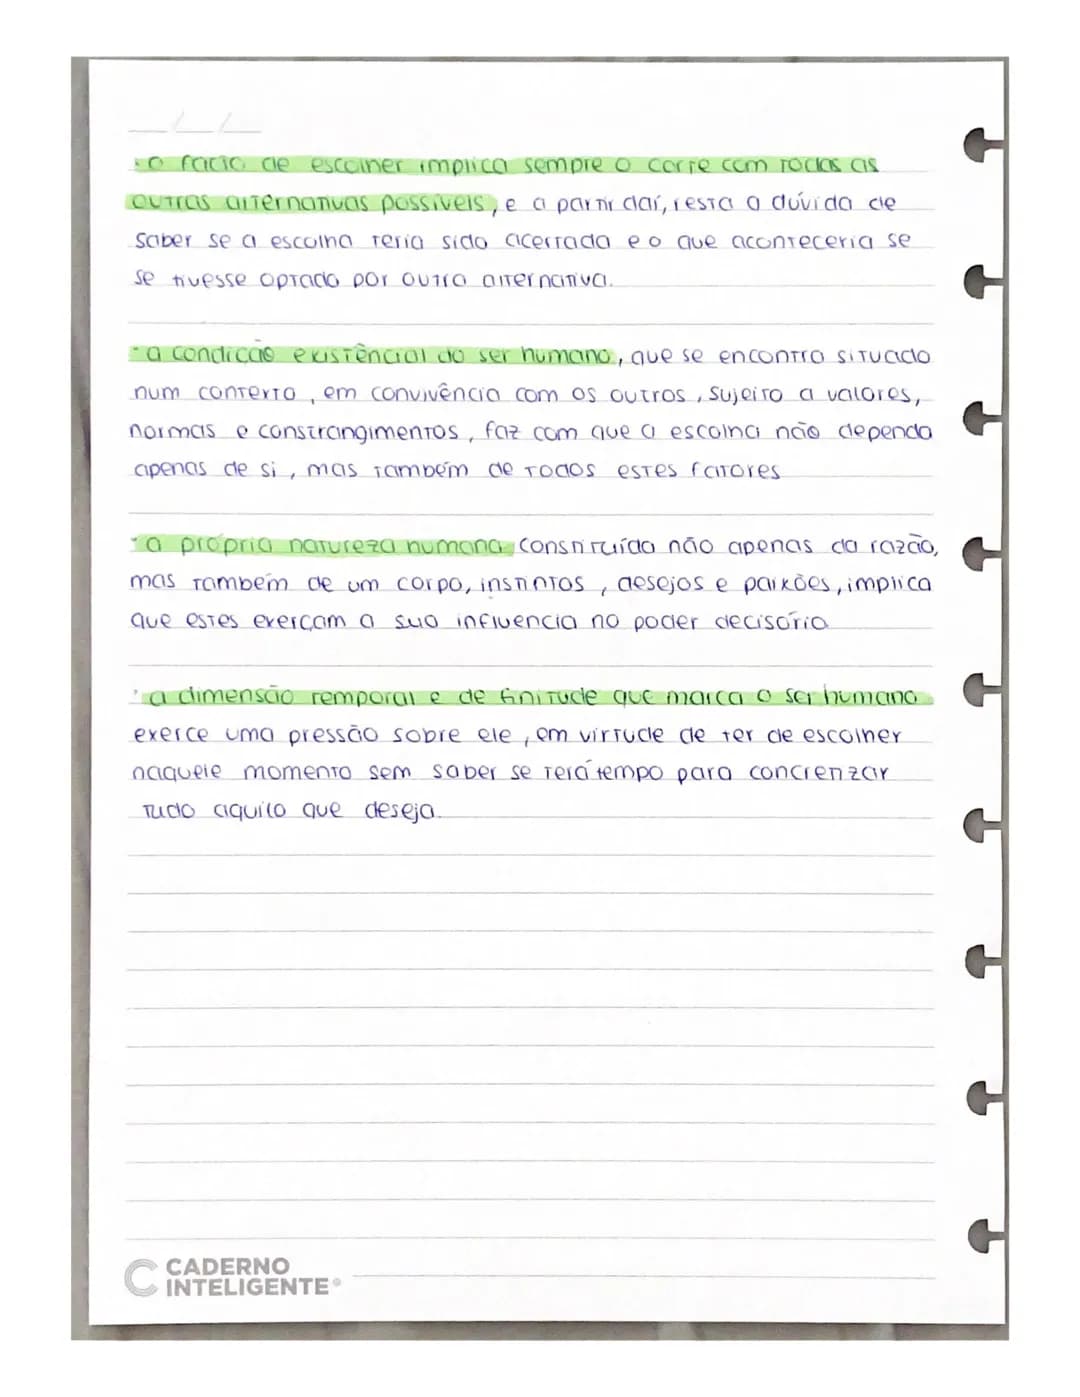 __/__/__
·o facto de escolher implica sempre o corte com todas as
outras alternativas possíveis, e a partir daí, resta a dúvida de
saber se a escolha teria sido acertada e o que aconteceria se
se tivesse optado por outra alternativa.
·a condição existêncial do ser humano, que se encontra situado
num contexto, em convivência com os outros, sujeito a valores,
normas e constrangimentos, faz com que a escolha não dependa
apenas de si, mas também de todos estes fatores
·a própria natureza humana constituída não apenas da razão,
mas também de um corpo, instintos, desejos e paixões, implica
que estes exerçam a sua influencia no poder decisório
·a dimensão temporal e de finitude que marca o ser humano
exerce uma pressão sobre ele, em virtude de ter de escolher
naquele momento sem saber se terá tempo para concretizar
tudo aquilo que deseja.
CADERNO
INTELIGENTE®